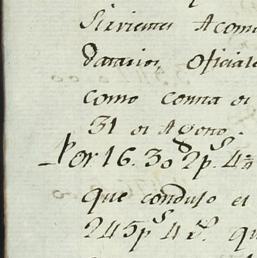 Sirvientes Acomo
datarios Oficiale
como consta
31 de Agosto.
Por 16.302p.s 4
que condujo el
245p.s 4 r.s qu